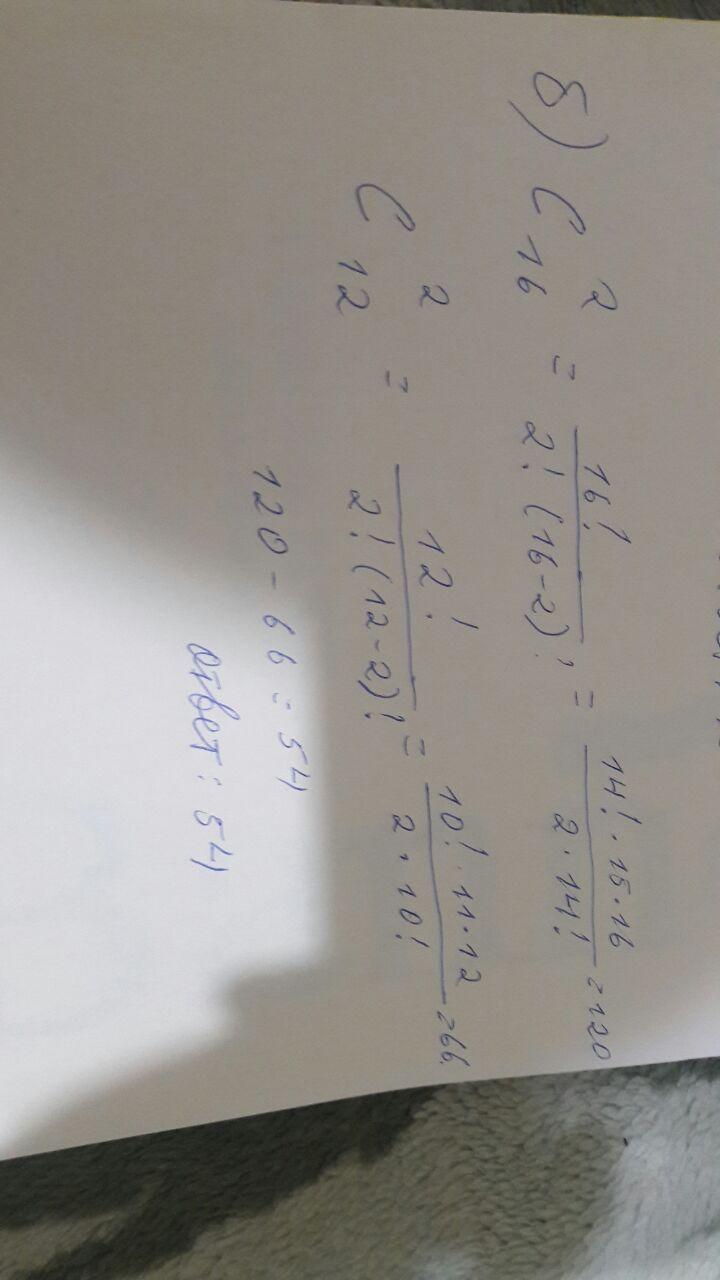 б) C₁₆² = 16! / 2! (16-2)! = 14! · 15 · 16 / 2 · 14! = 120
C₁₂² = 12! / 2! (12-2)! = 10! · 11 · 12 / 2 · 10! = 66.
120 - 66 = 54
ответ: 54